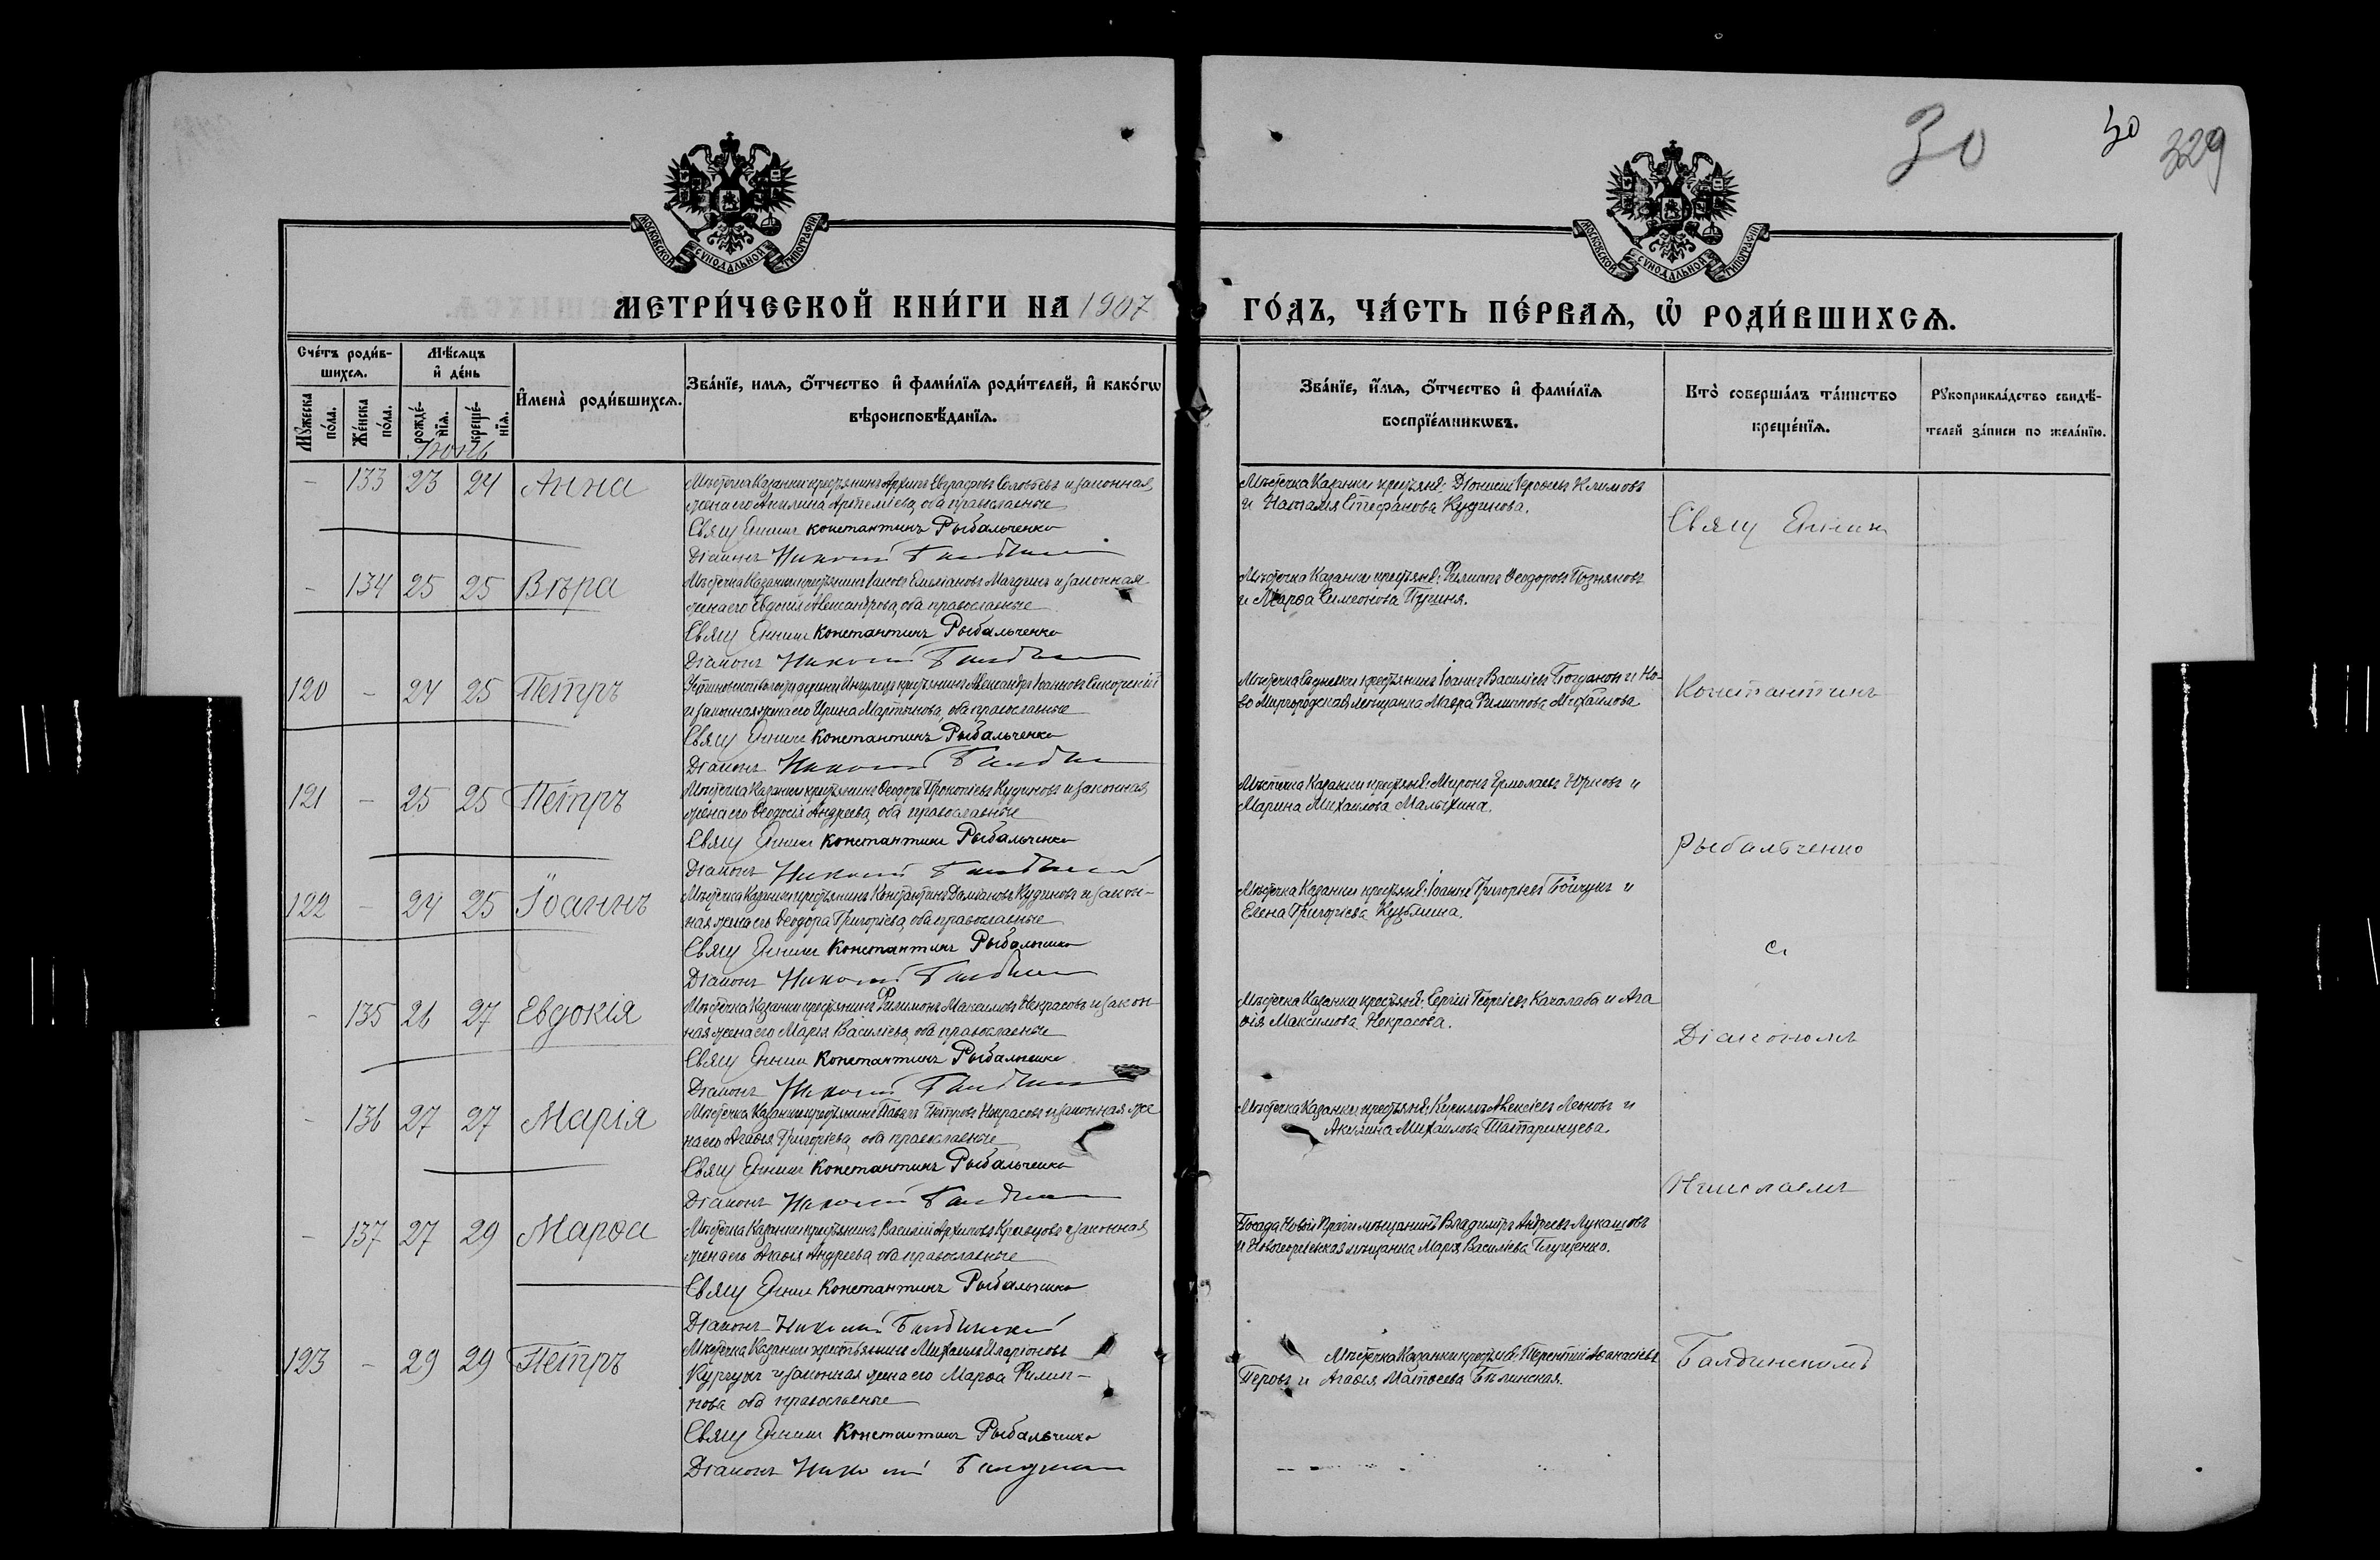 30
30
329
МОСКОВСКОЙ СѴНОДАЛЬНОЙ ТИПОГРАФІИ
МОСКОВСКОЙ СѴНОДАЛЬНОЙ ТИПОГРАФІИ
МЕТРИ́ЧЕСКОЙ КНИ́ГИ НА 1907 ГО́ДЪ, ЧА́СТЬ ПЕ́РВАѦ, Ѡ҆ РОДИ́ВШИХСѦ.
Сче́тъ роди́в-
шихсѧ.
Мꙋ́жеска по́ла.
Же́нска по́ла.
Мѣ́сѧцъ
и҆ де́нь
рожде́-
нїѧ.
креще́-
нїѧ.
И҆мена̀ роди́вшихсѧ.
Зва́нїе, имѧ, ѻ҆́тчество и҆ фами́лїѧ роди́телей, и҆ како́гѡ
вѣроисповѣ́данїѧ.
Зва́нїе, и҆́мѧ, ѻ҆́тчество и҆ фами́лїѧ
воспрїе́мникѡвъ.
Кто̀ соверша́лъ та́инство
креще́нїѧ.
Рꙋкоприкла́дство свидѣ́-
телей за́писи по жела́нїю.
Іюнь
- 133 23 24 Анна
Мѣстечка Казанки крестьянинъ Архипъ Евграфовъ Соловьевъ и законная
жена его Акилина Артеміева, оба православные
Свящ Константинъ Рыбальченко
Діаконъ Николай
Мѣстечка Казанки крестьяне: Діонисій Климовъ
и Наталія Стефанова Кудинова.
Свящ
- 134 25 25 Вѣра
Мѣстечка Казанки крестьянинъ Іаковъ Емиліановъ и законная
жена его Евдокія Александрова, оба православные
Свящ Константинъ Рыбальченко
Діаконъ Николай
Мѣстечка Казанки крестьяне: Филиппъ Ѳеодоровъ Позняковъ
и Марѳа Симеонова
120 - 24 25 Петръ
крестьянинъ Александръ Іоанновъ
и законная жена его Ирина Мартинова, оба православные
Свящ Константинъ Рыбальченко
Діаконъ Николай
крестьянинъ Іоаннъ Василіевъ и Но-
во Миргородская мѣщанка Мавра Филиппова Михайлова
Константинъ
121 - 25 25 Петръ
Мѣстечка Казанки крестьянинъ Ѳеодоръ Прокопіевъ Кудиновъ и законная
жена его Ѳеодосія Андреева, оба православные
Свящ Константинъ Рыбальченко
Діаконъ Николай
Мѣстечка Казанки крестьяне: Миронъ Ермолаевъ и
Марина Михайлова Малыхина.
Рыбальченко
122 - 24 25 Іоаннъ
Мѣстечка Казанки крестьянинъ Константинъ Даміановъ Кудиновъ и закон-
ная жена его Ѳеодора Григоріева, оба православные
Свящ Константинъ Рыбальченко
Діаконъ Николай
Мѣстечка Казанки крестьяне: Іоаннъ Григорьевъ и
Елена Григоріева Кузьмина.
съ
- 135 26 27 Евдокія
Мѣстечка Казанки крестьянинъ Филимонъ Максимовъ Некрасовъ и закон
ная жена его Марія Василіева, оба православные
Свящ Константинъ Рыбальченко
Діаконъ Николай
Мѣстечка Казанки крестьяне: Сергій Георгіевъ и Ага
ѳія Максимова Некрасова.
Діакономъ
- 136 27 27 Марія
Мѣстечка Казанки крестьянинъ Павелъ Петровъ Некрасовъ и законная же
на его Агаѳія Григоріева, оба православные
Свящ Константинъ Рыбальченко
Діаконъ Николай
Мѣстечка Казанки крестьяне: Кириллъ Алексіевъ Леоновъ и
Акилина Михайлова Татаринцева.
Николаемъ
- 137 27 29 Марѳа
Мѣстечка Казанки крестьянинъ Василій Архиповъ Кравцовъ и законная
жена его Агаѳія Андреева, оба православные
Свящ Константинъ Рыбальченко
Діаконъ Николай
Посада Новой Праги мѣщанинъ Владиміръ Андреевъ Лукашовъ
и Новогеоргіевская мѣщанка Марія Василіева Глущенко.
123 - 29 29 Петръ
Мѣстечка Казанки крестьянинъ Михаилъ Иларіоновъ
и законная жена его Марѳа Филип-
пова оба православные
Свящ Константинъ Рыбальченко
Діаконъ Николай
Мѣстечка Казанки крестьяне: Терентій Аѳанасіевъ
Перовъ и Агаѳія Матѳеева Билинская.
Балдинскимъ